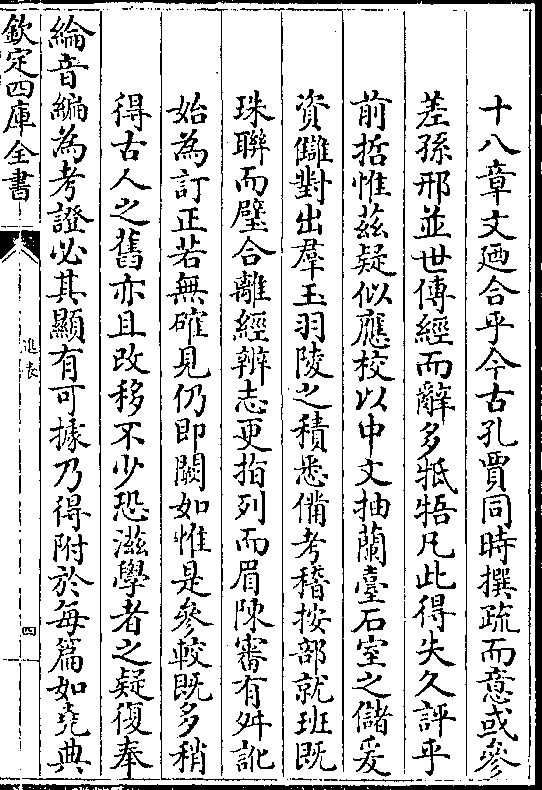 十八章文廼合乎今古孔賈同時撰疏而意或參
差孫邢並世傳經而辭多牴牾凡此得失久評乎
前哲惟兹疑似應校以中文抽蘭臺石室之儲爰
資讎對出羣玉羽陵之積悉備考稽按部就班既
珠聯而璧合離經辨志更指列而眉陳審有舛訛
始為訂正若無確見仍即闕如惟是參較既多稍
得古人之舊亦且改移不少恐滋學者之疑復奉
綸音編為考證必其顯有可據乃得附於每篇如堯典
欽定四庫全書
進表
四